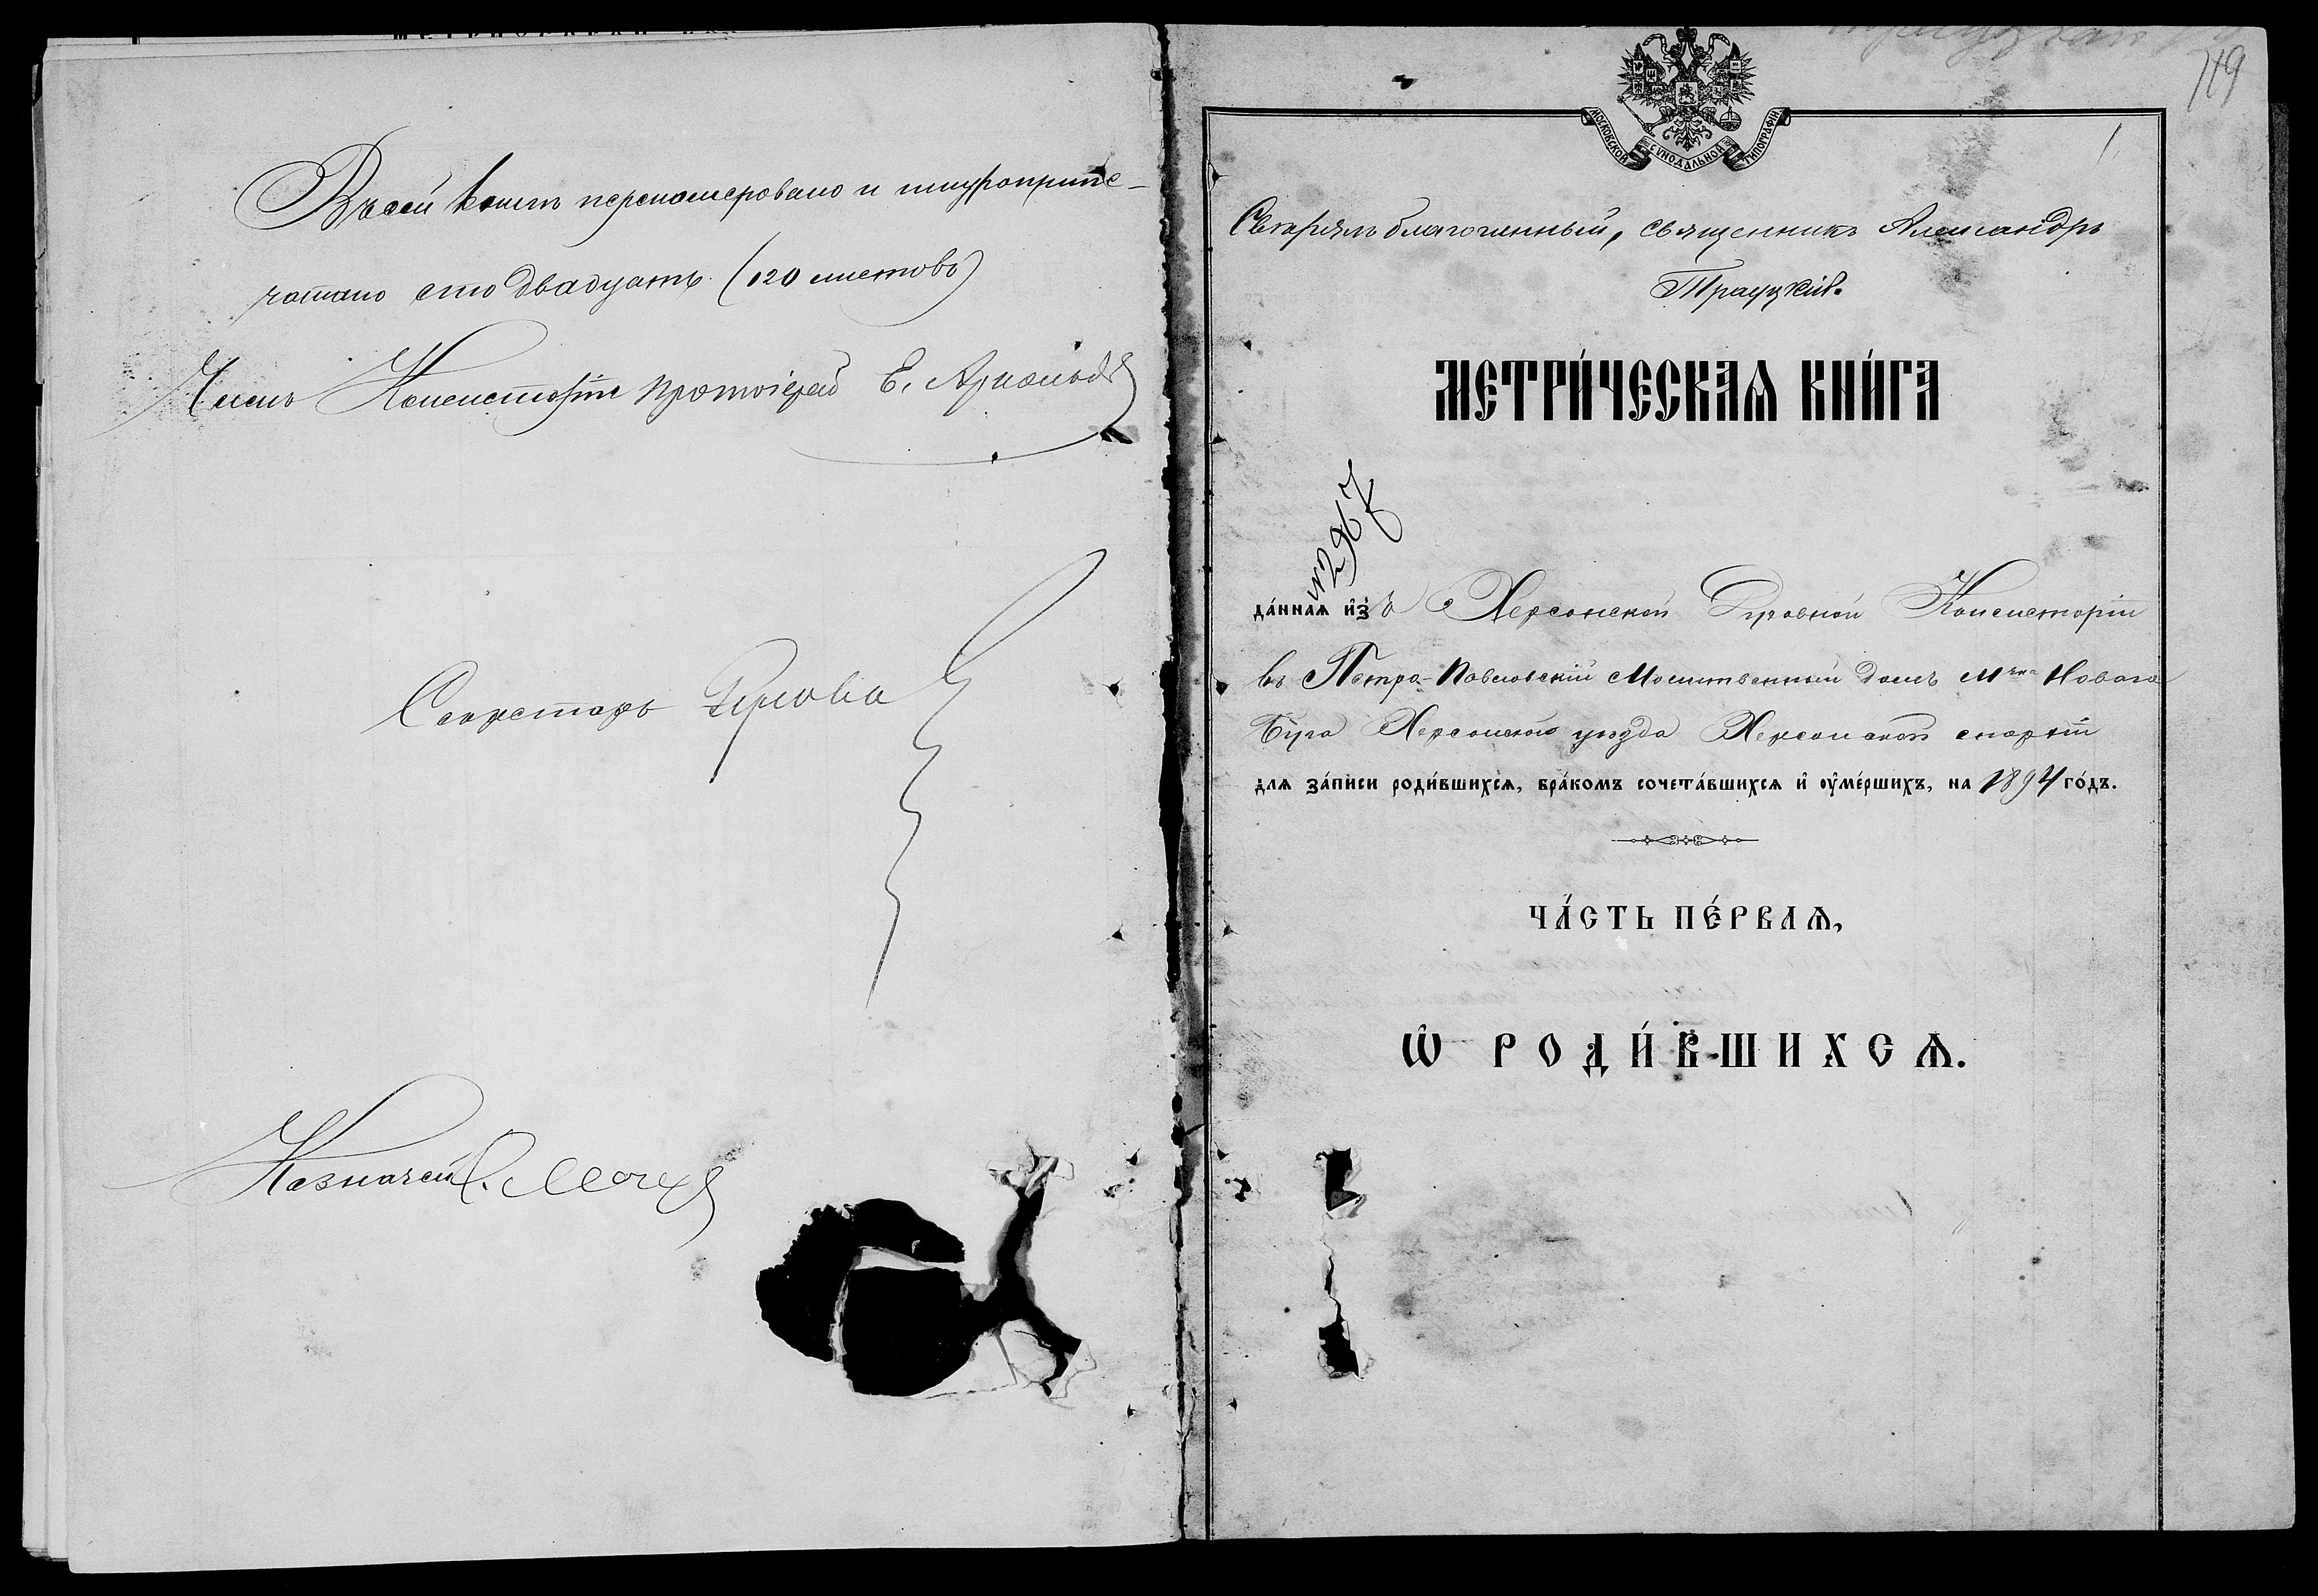 Въ сей книгѣ переномеровано и шнуроприпе-
чатано сто двадцать (120 листовъ)
Членъ Консисторіи протоіерей Е. Арнольдъ
Секретарь
Казначей
749
1.
МОСКОВСКОЙ СѴНОДАЛЬНОЙ ТИПОГРАФІИ
Свѣрялъ благочинный, священникъ Александръ
Трауцкій.
МЕТРИ́ЧЕСКАѦ КНИ́ГА
№2967
да́ннаѧ и҆з̾ Херсонской Духовной Консисторіи
въ Петро-Павловскій Молитвенный домъ Мчка Новаго
Буга Херсонскаго уѣзда Херсонской епархіи
длѧ за́писи роди́вшихсѧ, бра́комъ сочета́вшихсѧ и҆ ᲂу҆ме́ршихъ, на 1894 го́дъ.
ЧА́СТЬ ПЕ́РВАѦ,
Ѡ҆ РОДИ́ВШИХСѦ.